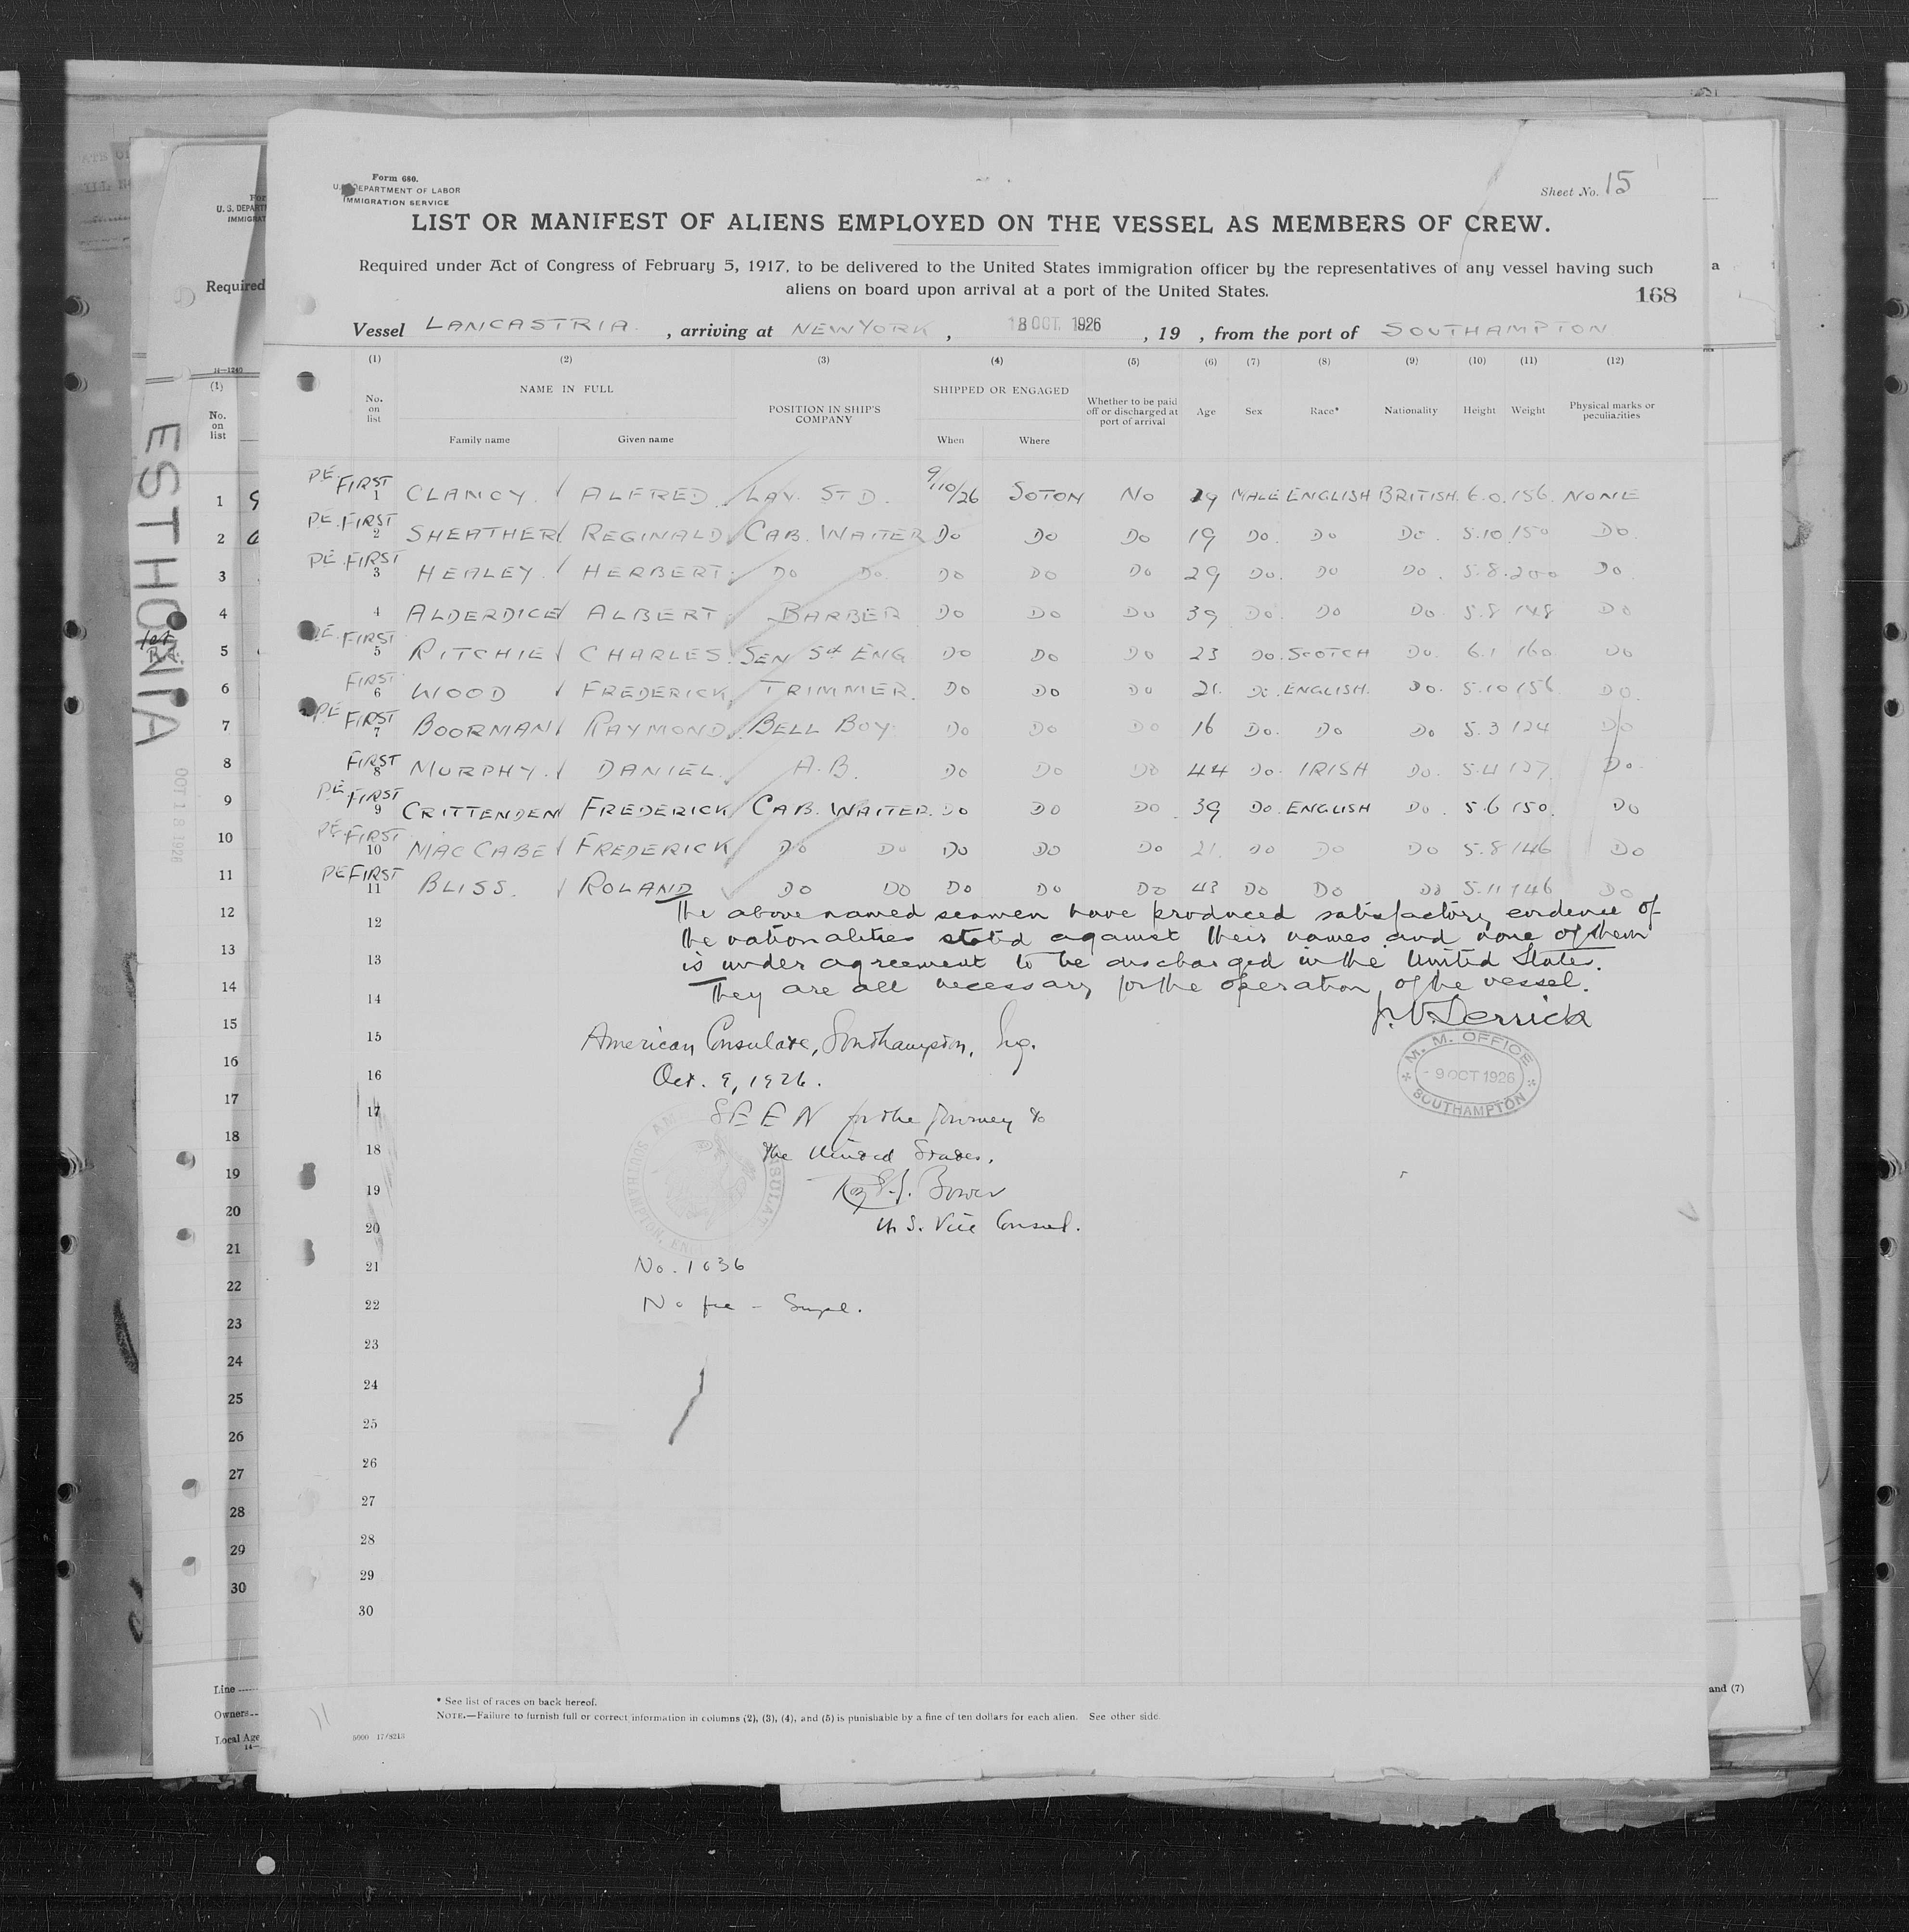 Form 680.
U.S. DEPARTMENT OF LABOR
IMMIGRATION SERVICE
Sheet No. 15
LIST OR MANIFEST OF ALIENS EMPLOYED ON THE VESSEL AS MEMBERS OF CREW.
Required under Act of Congress of February 5, 1917, to be delivered to the United States immigration officer by the representatives of any vessel having such
aliens on board upon arrival at a port of the United States.
168
Vessel LANCASTRIA, arriving at NEW YORK, 18 OCT. 1926, 19 , from the port of SOUTHAMPTON
(1) (2) (3) (4) (5) (6) (7) (8) (9) (10) (11) (12)
No. on list NAME IN FULL Family name Given name POSITION IN SHIP'S COMPANY SHIPPED OR ENGAGED When Where Whether to be paid off or discharged at port of arrival Age Sex Race* Nationality Height Weight Physical marks or peculiarities
PE FIRST 1 CLANCY. ALFRED. LAV. STD. 9/10/26 SOTON NO 29 MALE ENGLISH BRITISH. 6.0. 156. NONE
PE. FIRST 2 SHEATHER REGINALD CAB. WAITER DO DO DO 19 DO. DO DO. 5.10. 150 DO.
PE. FIRST 3 HEALEY. HERBERT. DO DO. DO DO DO 29 DO. DO DO. 5.8. 200 DO.
4 ALDERDICE ALBERT BARBER DO DO DO 39 DO. DO DO. 5.8 148 DO
PE. FIRST 5 RITCHIE CHARLES. SEN 5th ENG DO DO DO 23 DO. SCOTCH DO. 6.1 160. DO
FIRST 6 WOOD FREDERICK, TRIMMER. DO DO DO 21. DO. ENGLISH. DO. 5.10 156 DO.
PE FIRST 7 BOORMAN RAYMOND. BELL BOY. DO DO DO 16 DO. DO DO 5.3 124 DO
FIRST 8 MURPHY. DANIEL A.B. DO DO DO 44 DO. IRISH DO. 5.4 137. DO.
PE FIRST 9 CRITTENDEN FREDERICK CAB. WAITER. DO DO DO 39 DO. ENGLISH DO. 5.6 150. DO
PE FIRST 10 MACCABE FREDERICK DO DO DO DO DO 21. DO DO DO 5.8 146 DO
PE FIRST 11 BLISS. ROLAND DO DO DO DO DO 43 DO DO DO 5.11 146 DO
12 The above named seamen have produced satisfactory evidence of
the nationalities stated against their names and none of them
13 is under agreement to be discharged in the United States.
14 They are all necessary for the operation of the vessel.
15 American Consulate, Southampton, Eng.
M. M. OFFICE
- 9 OCT 1926
SOUTHAMPTON
16 Oct. 9, 1926.
17 SEEN for the journey to
18 the United States.
19
20 U.S. Vice Consul.
21 No. 1036
22 No fee - Suppl.
23
24
25
26
27
28
29
30
* See list of races on back hereof.
NOTE.—Failure to furnish full or correct information in columns (2), (3), (4), and (5) is punishable by a fine of ten dollars for each alien. See other side.
5000 17/8213
U. S. DEPART
IMMIGRAT
Required
14—1240
(1)
No.
on
list
ESTHONIA
OCT 18 1926
1
2
3
4
5
6
7
8
9
10
11
12
13
14
15
16
17
18
19
20
21
22
23
24
25
26
27
28
29
30
Line
Owners
Local Age
and (7)